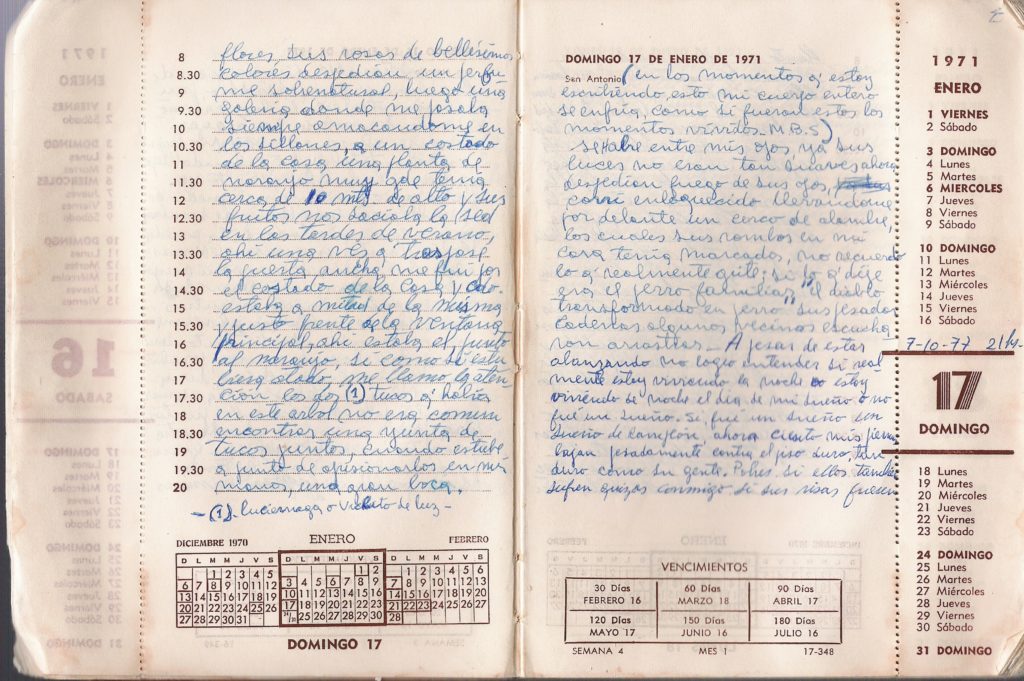 8 flores sus rosas de bellísimos
8.30 colores despedían un perfu
9 me sobrenatural, luego una
9.30 galería donde me posaba
10 siempre amacandome en
10.30 los sillones, a un costado
11 de la casa una planta de
11.30 naranjo muy gde tenía
12 cerca de 10 mts de alto y sus
12.30 frutos nos saciaba la sed
13 en las tardes de verano,
13.30 ahí una vés q traspasé
14 la puerta ancha me fui por
14.30 el costado de la casa y cdo
15 estaba a mitad de la misma
15.30 y justo frente de la ventana
16 principal, ahí estaba el, junto
16.30 al naranjo, si como si estu
17 biera atado, me llamo la aten
17.30 cion los dos (1) tucos q' había
18 en este arbol no era comun
18.30 encontrar una yunta de
19 tucos juntos, cuando estube
19.30 a punto de apisionarlos en mis
20 manos, una gran boca,
- (1) - luciernaga o vichito de luz -
DICIEMBRE 1970 ENERO FEBRERO
D L M M J V S D L M M J V S D L M M J V S
1 2 3 4 5 1 2 1 2 3 4 5 6
6 7 8 9 10 11 12 3 4 5 6 7 8 9 7 8 9 10 11 12 13
13 14 15 16 17 18 19 10 11 12 13 14 15 16 14 15 16 17 18 19 20
20 21 22 23 24 25 26 17 18 19 20 21 22 23 21 22 23 24 25 26 27
27 28 29 30 31 24/31 25 26 27 28 29 30 28
DOMINGO 17
DOMINGO 17 DE ENERO DE 1971
San Antonio (en los momentos q' estoy
escribiendo esto mi cuerpo entero
se enfría, como si fueran estos los
momentos vividos. M.B.S)
se abre entre mis ojos ya sus
luces no eran tan suaves ahora
despedían fuego de sus ojos,
corri enloquecido llevandome
por delante un cerco de alambre,
los cuales sus rombos en mi
cara tenía marcados, no recuerdo
lo q' realmente grité: si lo q' dije
era el perro familiar, "el diablo
transformado en perro" sus pesadas
cadenas algunos vecinos escucha
ron arrastrar. A pesar de estar
alcanzando no logro entender si real
mente estoy viviendo la noche o estoy
viviendo de noche el día de mi sueño o no
fué un sueño. Si fué un sueño un
sueño de campeón, ahora siento mis piernas
bajan pesadamente contra el piso duro, tan
duro como su gente. Pobres si ellos también
sufren quizas conmigo si sus risas fuesen
VENCIMIENTOS
30 Días 60 Días 90 Días
FEBRERO 16 MARZO 18 ABRIL 17
120 Días 150 Días 180 Días
MAYO 17 JUNIO 16 JULIO 16
SEMANA 4 MES 1 17-348
1971
ENERO
1 VIERNES
2 Sábado
3 DOMINGO
4 Lunes
5 Martes
6 MIERCOLES
7 Jueves
8 Viernes
9 Sábado
10 DOMINGO
11 Lunes
12 Martes
13 Miércoles
14 Jueves
15 Viernes
16 Sábado
7-10-77 21 hs.
17
DOMINGO
18 Lunes
19 Martes
20 Miércoles
21 Jueves
22 Viernes
23 Sábado
24 DOMINGO
25 Lunes
26 Martes
27 Miércoles
28 Jueves
29 Viernes
30 Sábado
31 DOMINGO